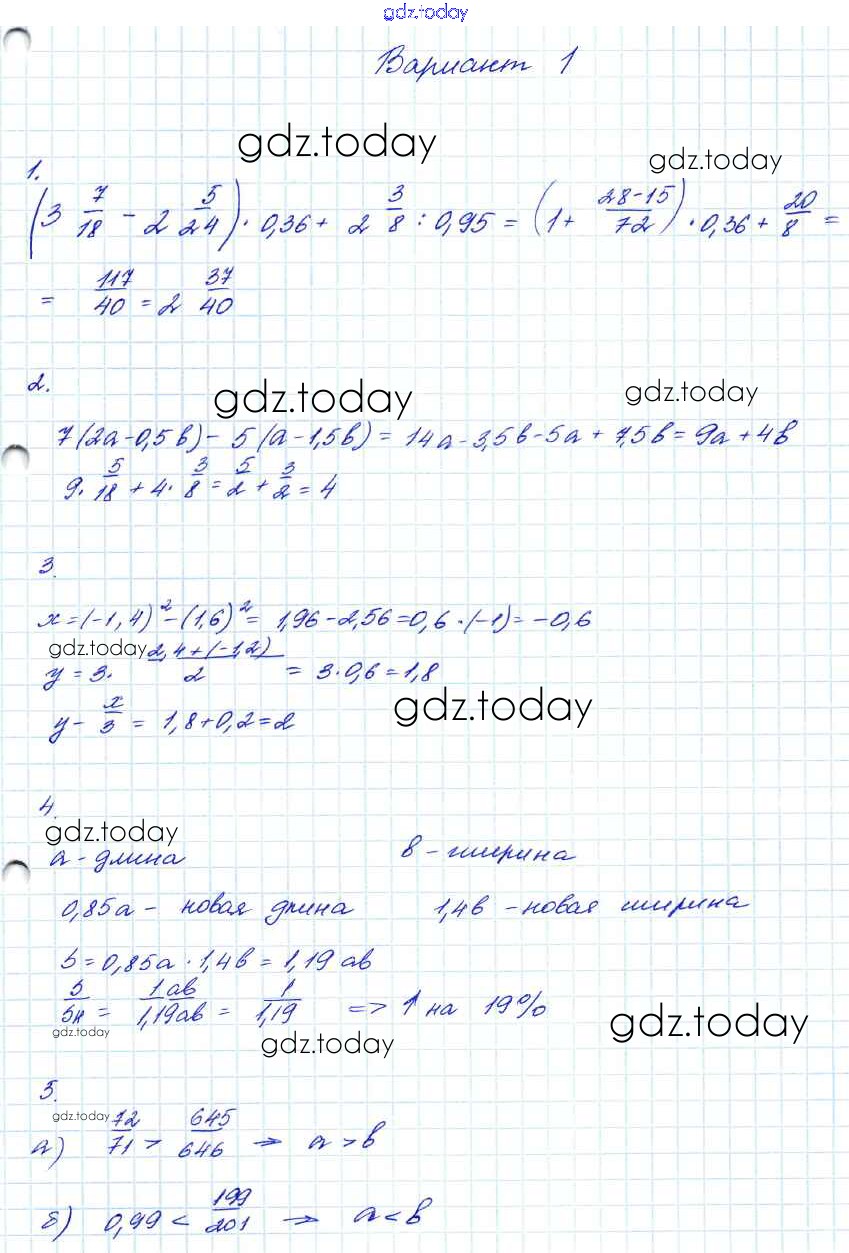 gdz.today
Вариант 1
gdz.today
gdz.today
1.
(3 7/18 - 2 5/24) · 0,36 + 2 3/8 : 0,95 = (1 + (28-15)/72) · 0,36 + 20/8 =
= 117/40 = 2 37/40
2.
gdz.today
gdz.today
7(2a-0,5в) - 5(a-1,5в) = 14a-3,5в-5a+7,5в = 9a+4в
9 · 5/18 + 4 · 3/8 = 5/2 + 3/2 = 4
3.
x = (-1,4)² - (1,6)² = 1,96 - 2,56 = 0,6 · (-1) = -0,6
gdz.today
y = 3 · (2,4+(-1,2))/2 = 3 · 0,6 = 1,8
gdz.today
y - x/3 = 1,8 + 0,2 = 2
4.
gdz.today
a - длина в - ширина
0,85a - новая длина 1,4в - новая ширина
S = 0,85a · 1,4в = 1,19 aв
S/Sн = 1aв/1,19aв = 1/1,19 => ↑ на 19%
gdz.today
gdz.today
gdz.today
5.
gdz.today
а) 72/71 > 645/646 → a > в
б) 0,99 < 199/201 → a < в